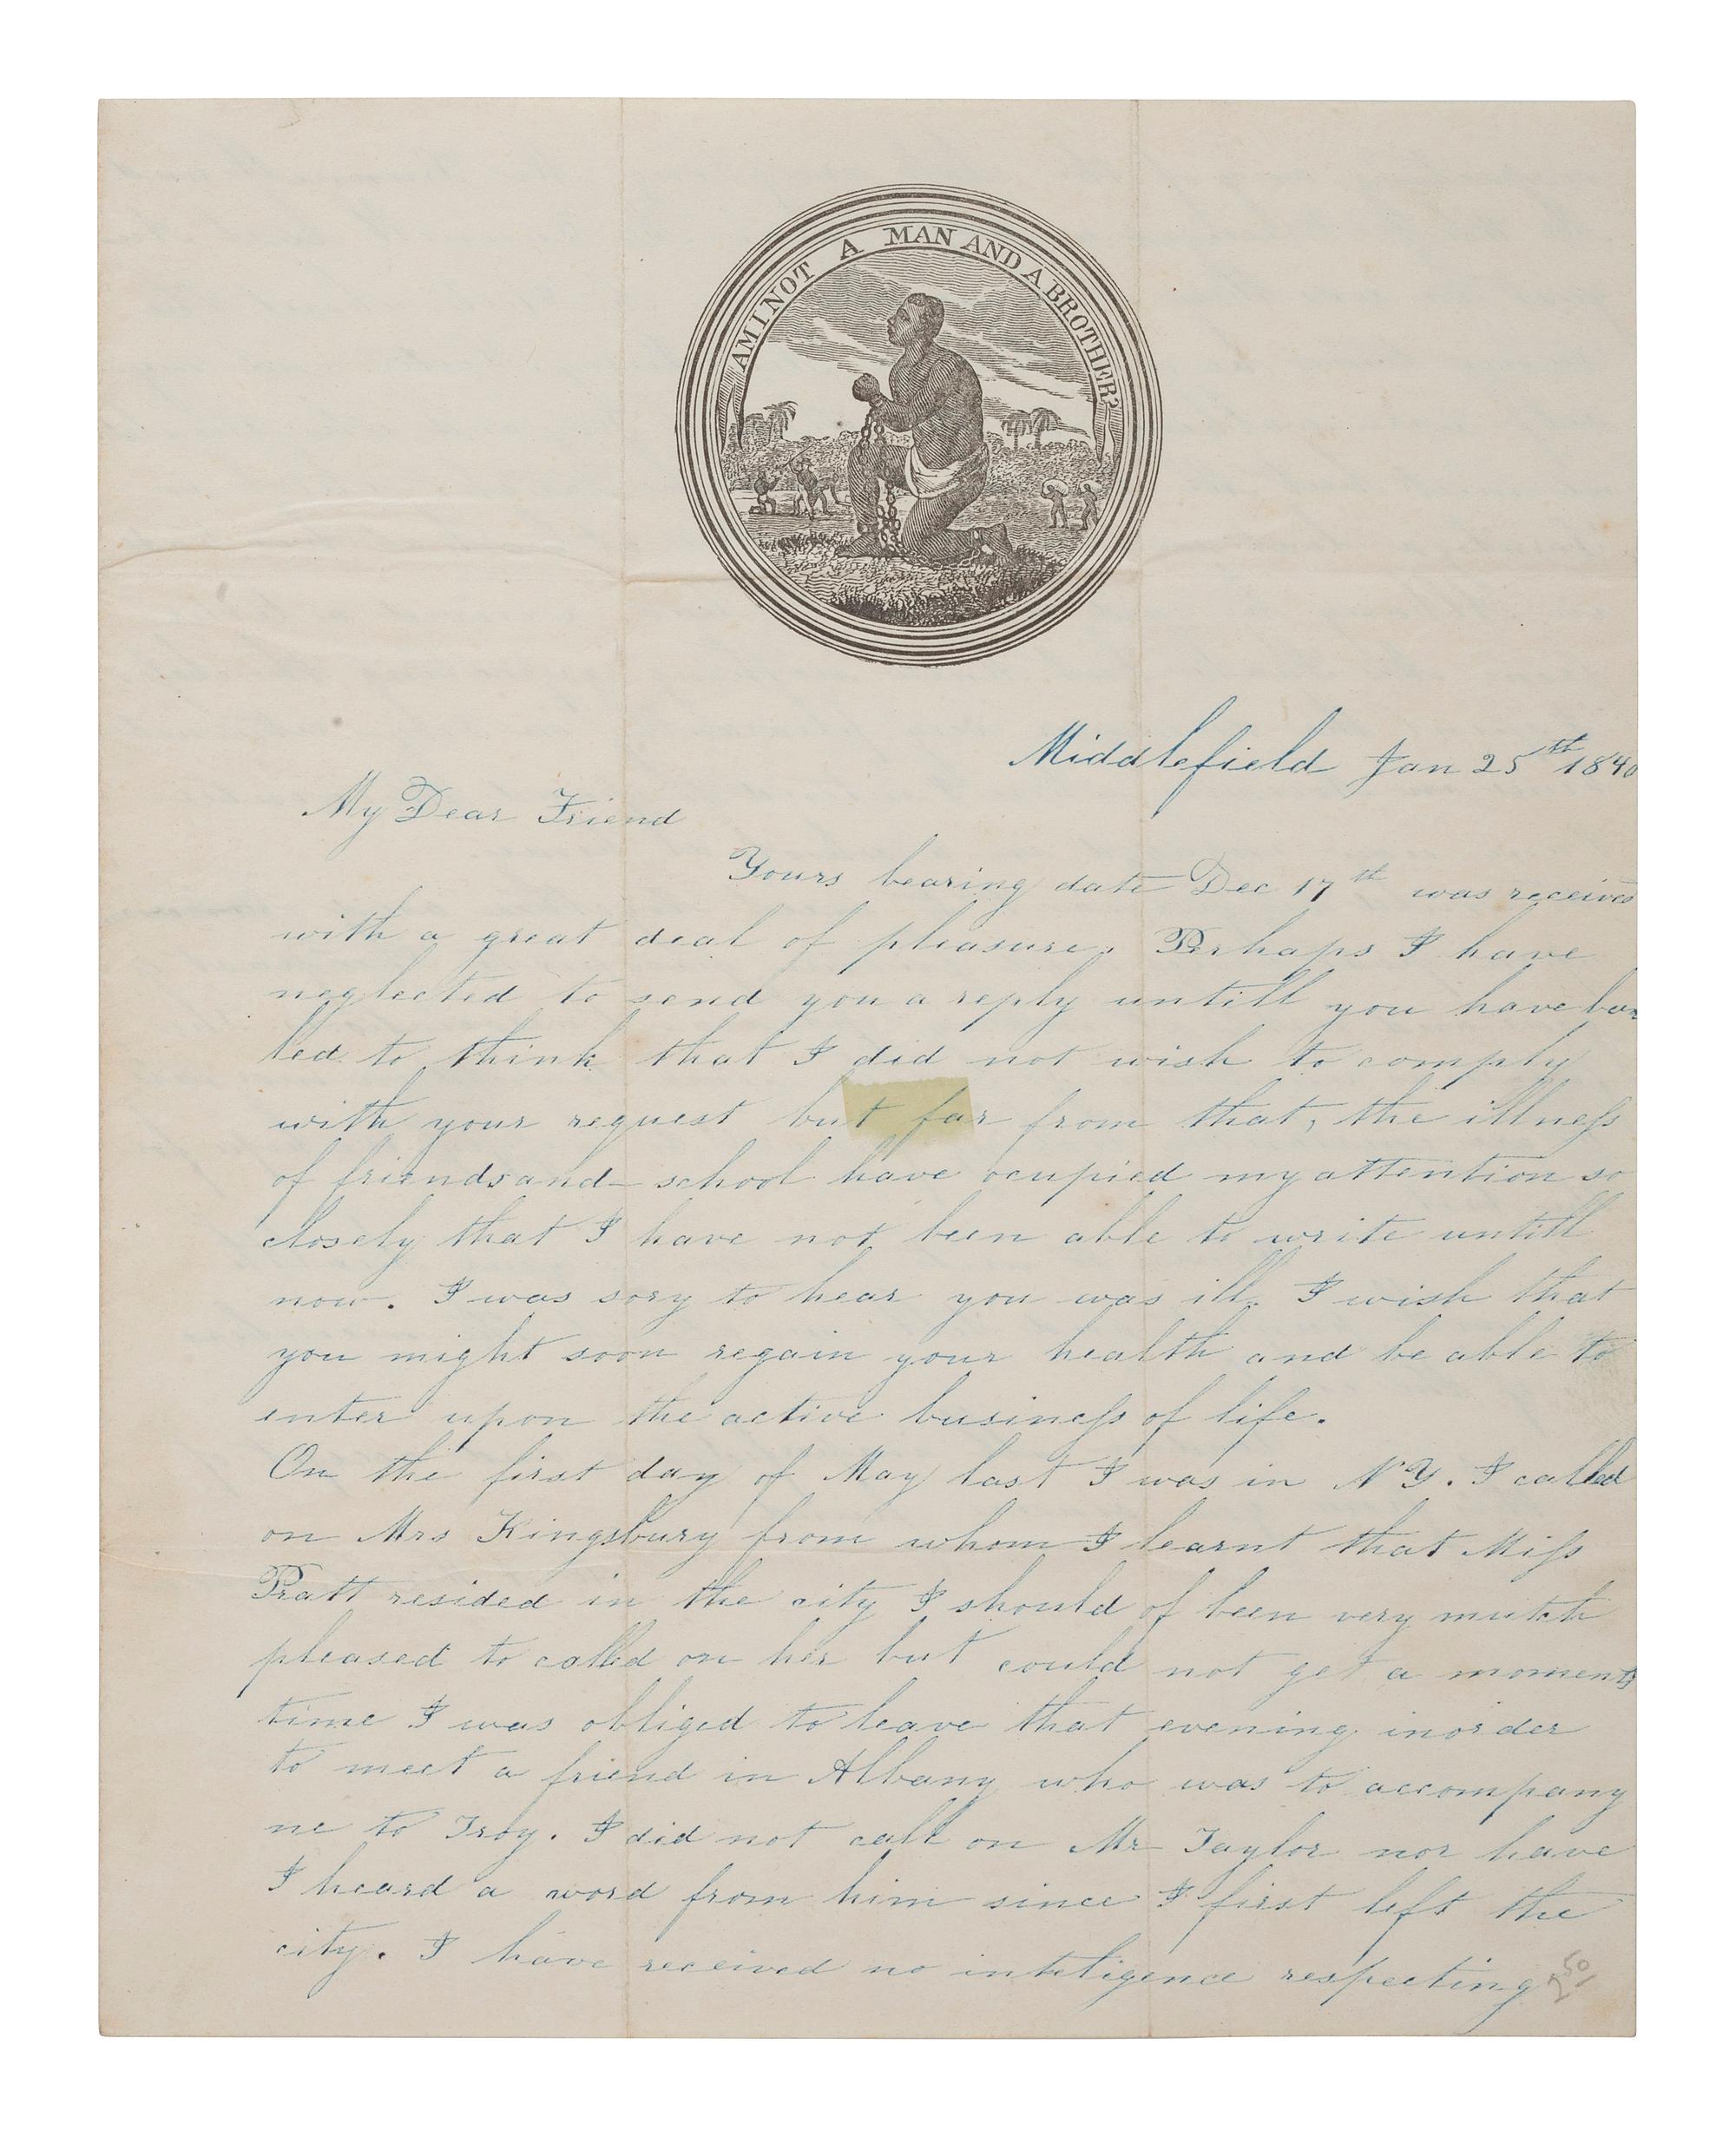 AM I NOT A MAN AND A BROTHER?
Middlefield Jan 25th 1840
My Dear Friend
Yours bearing date Dec 17th was received
with a great deal of pleasure. Perhaps I have
neglected to send you a reply untill you have
led to think that I did not wish to comply
with your request but far from that, the illneſs
of friends and school have ocupied my attention so
closely that I have not been able to write untill
now. I was sory to hear you was ill. I wish that
you might soon regain your health and be able to
enter upon the active busineſs of life.
On the first day of May last I was in N Y. I called
on Mrs Kingsbury from whom I learnt that Miſs
Pratt resided in the city I should of been very mutch
pleased to called on her but could not get a moments
time I was obliged to leave that evening inorder
to meet a friend in Albany who was to accompany
me to Troy. I did not call on Mr Taylor nor have
I heard a word from him since I first left the
city. I have received no inteligence respecting
250